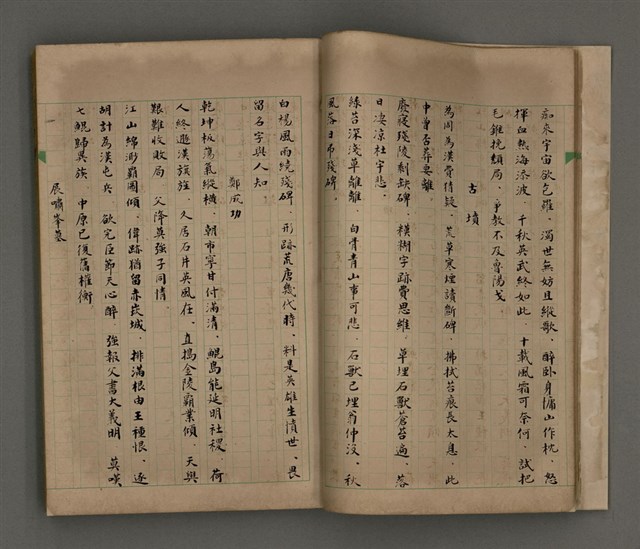 痴來宇宙欲乞羅、濁世無妨且縱歌、醉臥身慵山作枕、愁
揮血熱海添波、千秋英武終如此、十載風霜可奈何、試把
毛錐挽頹局、爭教不及魯陽戈、
古墳
為周為漢費猜疑、荒草寒埋讀斷碑、拂拭苔痕長太息、此
中曾否葬要離、
廢寢殘陵剩缺碑、糢糊字跡費思維、草埋石獸蒼苔遍、落
日淒涼杜宇悲、
綠苔深淺草離離、白骨青山事可悲、石獸已埋翁仲沒、秋
風落日弔殘碑、
白楊風雨繞殘碑、形跡荒唐幾代時、料是英雄生憤世、畏
留名字與人知、
鄭成功
乾坤板蕩氣縱橫、朝市寧甘付滿清、鯤島能延明社稷、荷
人終遜漢強強、久居石片英風在、直搗金陵霸業傾、天與
艱難收敗局、父降異族子同情、
江山綿渺霸圖傾、偉跡猶留赤崁城、排滿根由王種恨、逐
胡計為漢屯兵、欲完臣節天心醉、強報父書大義明、莫嘆
七鯤歸異族、中原已復舊權衡
展嘯峯墓